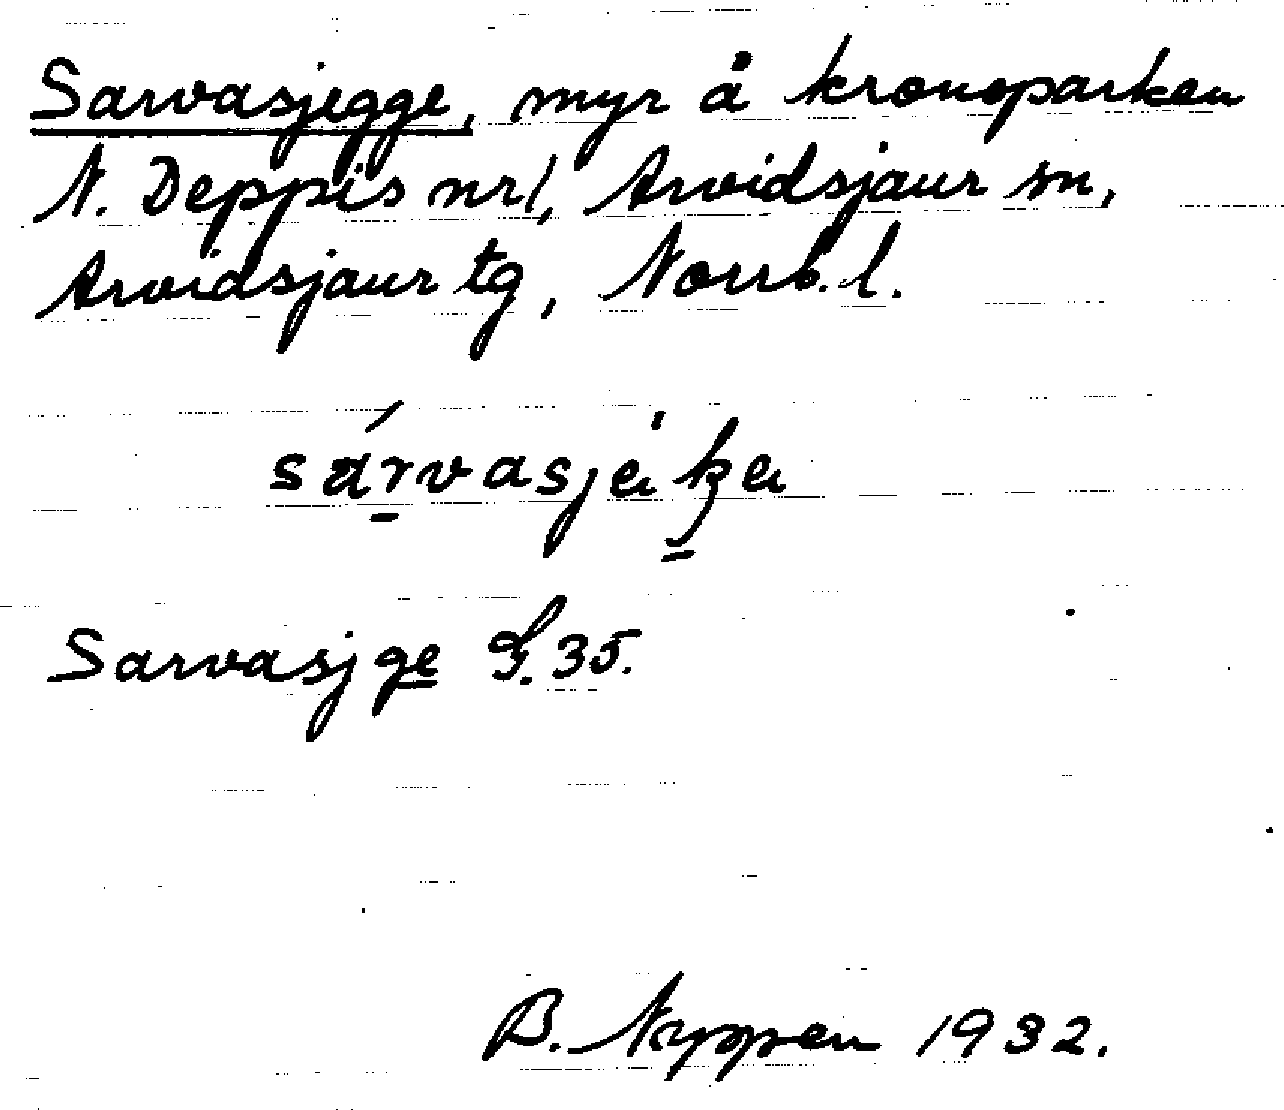 Sarvasjegge, myr å kronoparken
N. Deppis nr 1, Arvidsjaur sn,
Arvidsjaur tg, Norrb. l.
Sarvasjge 35.
B. Nyppen 1932.